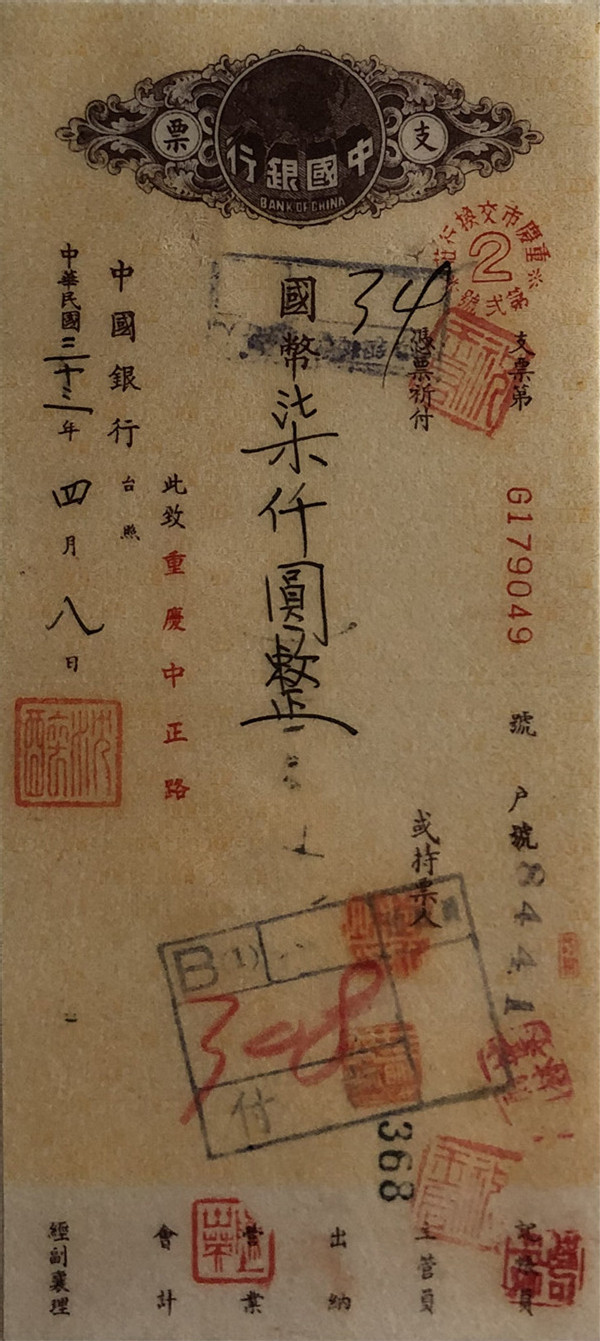 支票
中國銀行
BANK OF CHINA
重慶市交換行莊
2
第弍號
支票第 G179049 號 戶號 8441
憑票祈付
或持票人
34
國幣柒仟圓整正
此致重慶中正路
中國銀行 台照
中華民國三十三年四月八日
B(1)
348
付
368
記帳員
主管員
出納
營業
會計
經副襄理